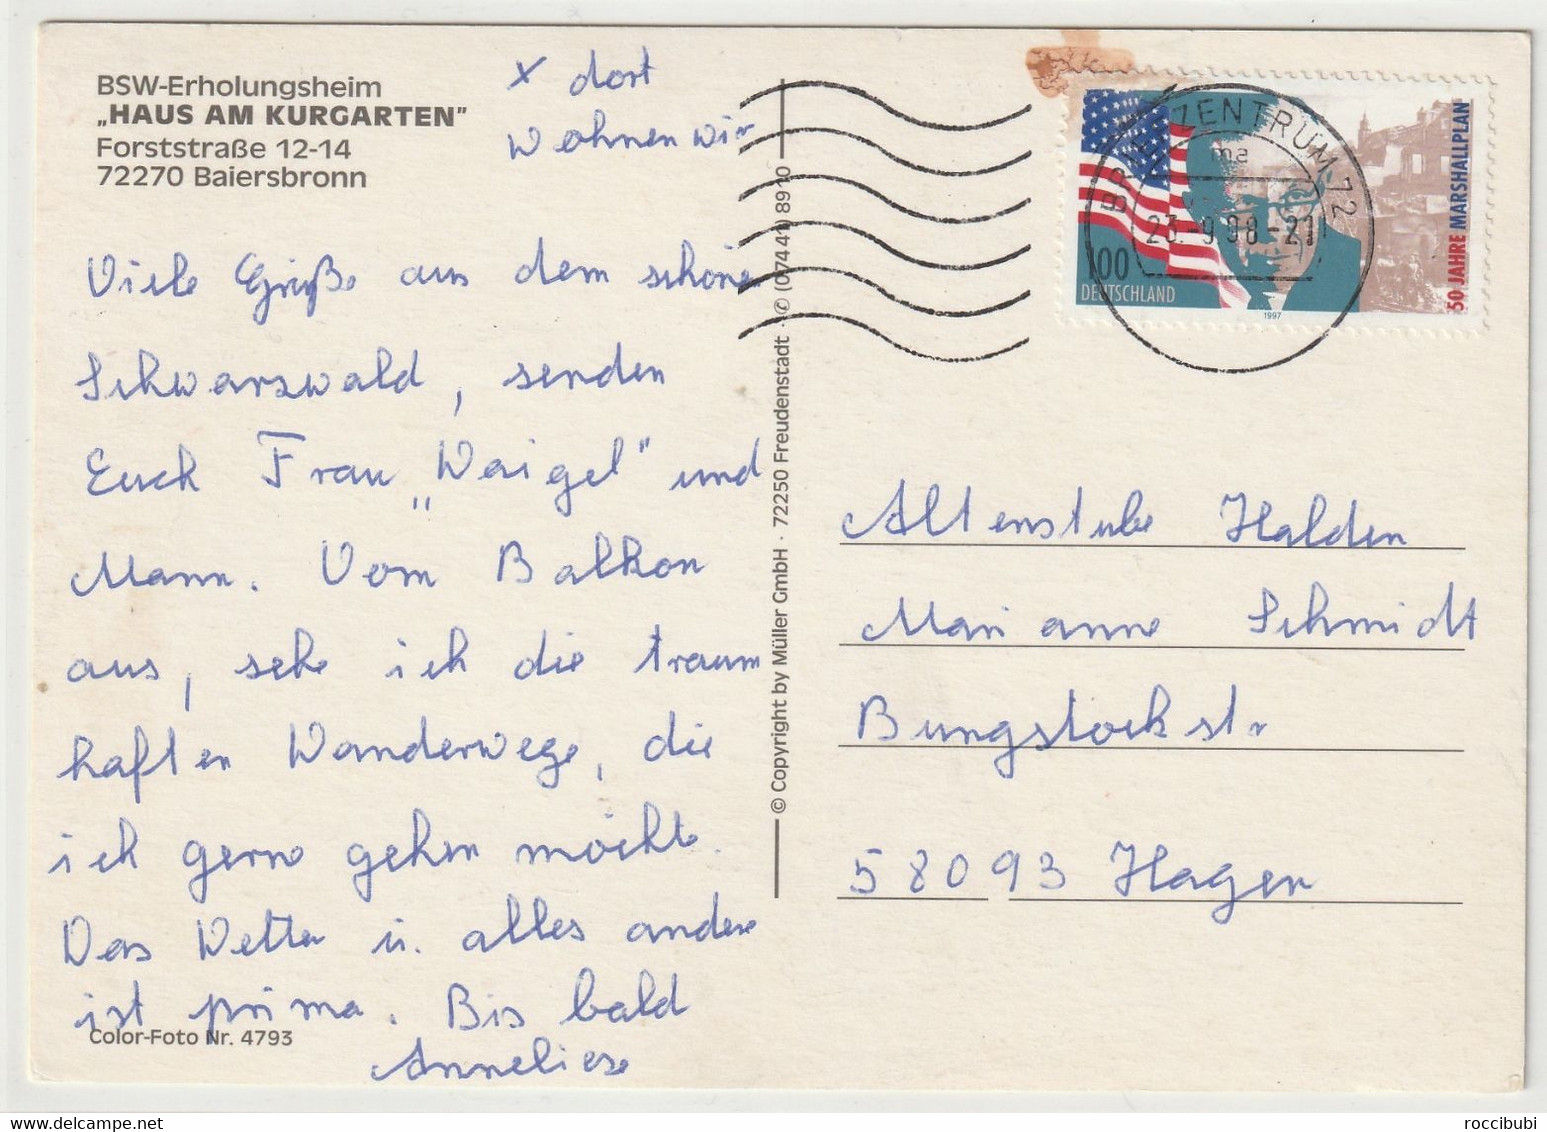 BSW-Erholungsheim
„HAUS AM KURGARTEN"
Forststraße 12-14
72270 Baiersbronn
x dort
wohnen wir
Viele Grüße aus dem schönen
Schwarzwald, senden
Euch Frau „Waigel" und
Mann. Vom Balkon
aus, sehe ich die traum
haften Wanderwege, die
ich gerne gehen möchte.
Das Wetter u. alles andere
ist prima. Bis bald
Anneliese
Color-Foto Nr. 4793
© Copyright by Müller GmbH · 72250 Freudenstadt · ✆ (07441) 8910
BRIEFZENTRUM 72
ma
23.-9.98-21
100
DEUTSCHLAND
1997
50 JAHRE MARSHALLPLAN
Altenstube Halden
Marianne Schmidt
Bungstockstr
58093 Hagen
roccibubi